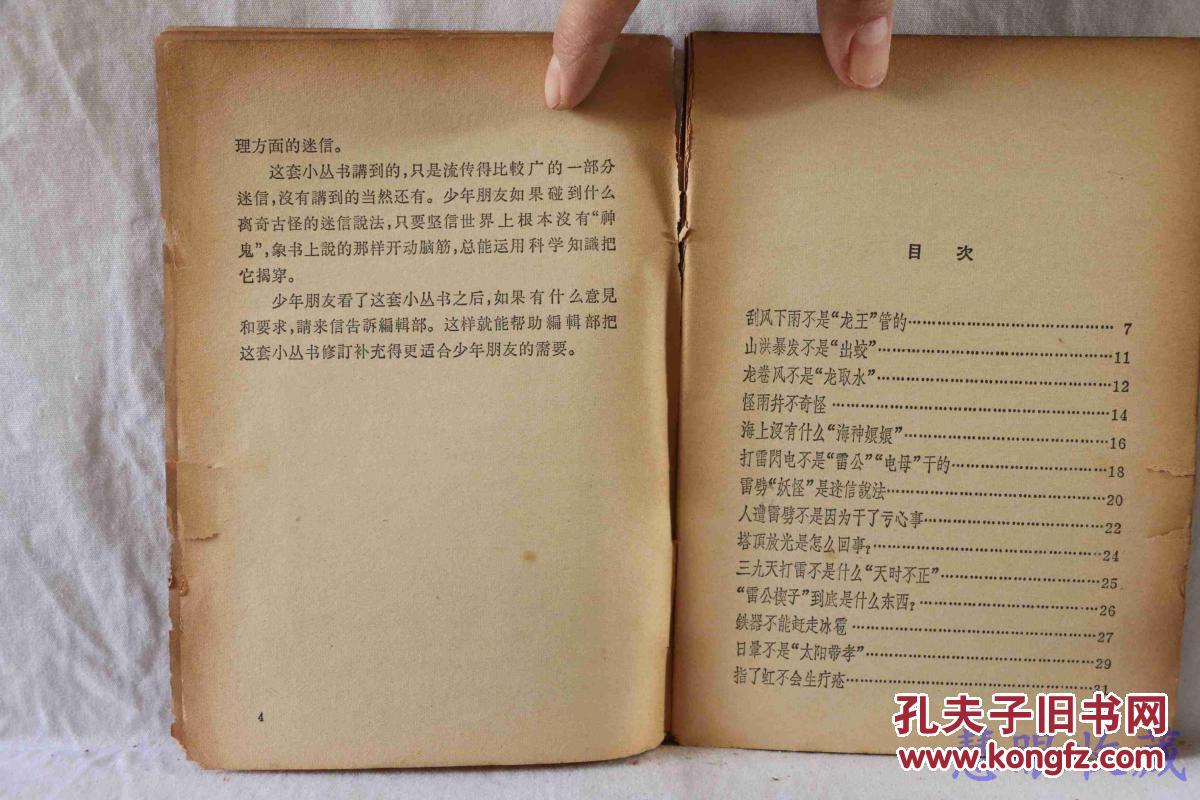 理方面的迷信。
这套小丛书講到的，只是流传得比較广的一部分
迷信，沒有講到的当然还有。少年朋友如果碰到什么
离奇古怪的迷信說法，只要坚信世界上根本沒有“神
鬼”，象书上說的那样开动脑筋，总能运用科学知識把
它揭穿。
少年朋友看了这套小丛书之后，如果有什么意見
和要求，請来信告訴編輯部。这样就能帮助編輯部把
这套小丛书修訂补充得更适合少年朋友的需要。
4
目 次
刮风下雨不是“龙王”管的………………………………7
山洪暴发不是“出蛟”………………………………11
龙卷风不是“龙取水”………………………………12
怪雨井不奇怪………………………………14
海上沒有什么“海神娘娘”………………………………16
打雷閃电不是“雷公”“电母”干的………………………………18
雷劈“妖怪”是迷信說法………………………………20
人遭雷劈不是因为干了亏心事………………………………22
塔頂放光是怎么回事？………………………………24
三九天打雷不是什么“天时不正”………………………………25
“雷公楔子”到底是什么东西？………………………………26
鉄器不能赶走冰雹………………………………27
日暈不是“太阳带孝”………………………………29
指了虹不会生疔疮………………………………31
孔夫子旧书网
www.kongfz.com
慧眼收藏